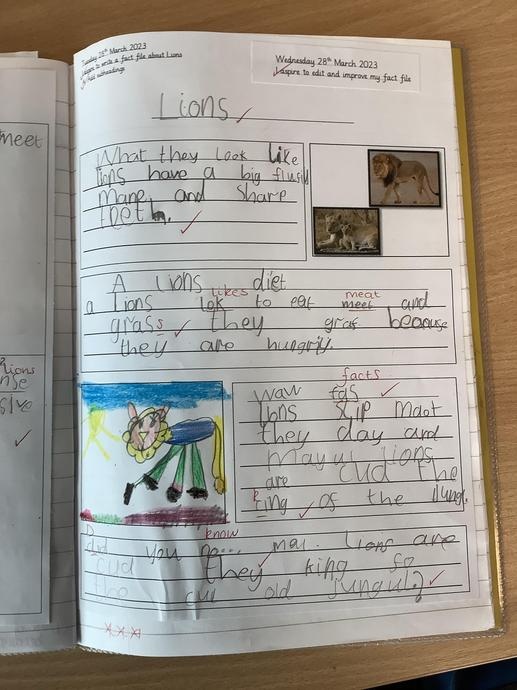 Tuesday 28th March 2023
I aspire to write a fact file about Lions
subheadings
Wednesday 28th March 2023
I aspire to edit and improve my fact file
Lions
What they look like
lions have a big flufiy
mane and share
teeth.
A lions diet
likes meat
a lions lok to eat meet and
grass they grat beacuse
they are hungriy.
facts
waw fas
lions slip maot
they day and
lions
are cud the
king of the Jungl.
know
Did you no... lions are
cud they king fo
the cud old Jungul?
meet